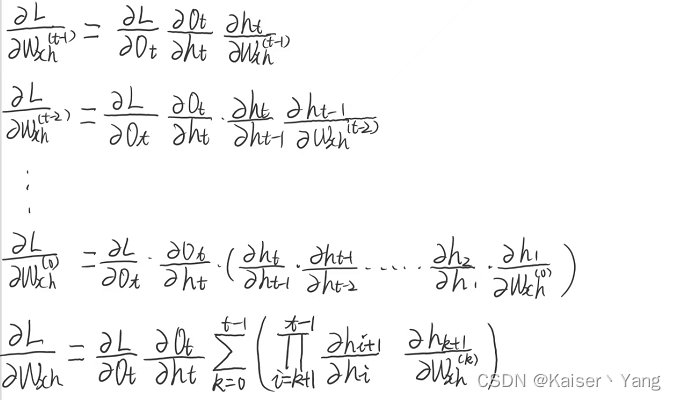 ∂L/∂W_xh^(t-1) = ∂L/∂O_t ∂O_t/∂h_t ∂h_t/∂W_xh^(t-1)
∂L/∂W_xh^(t-2) = ∂L/∂O_t ∂O_t/∂h_t · ∂h_t/∂h_t-1 ∂h_t-1/∂W_xh^(t-2)
⋮
∂L/∂W_xh^(0) = ∂L/∂O_t · ∂O_t/∂h_t · (∂h_t/∂h_t-1 · ∂h_t-1/∂h_t-2 ····· ∂h_2/∂h_1 · ∂h_1/∂W_xh^(0))
∂L/∂W_xh = ∂L/∂O_t ∂O_t/∂h_t ∑_{k=0}^{t-1} (∏_{i=k+1}^{t-1} ∂h_i+1/∂h_i ∂h_k+1/∂W_xh^(k))
CSDN @Kaiser丶Yang